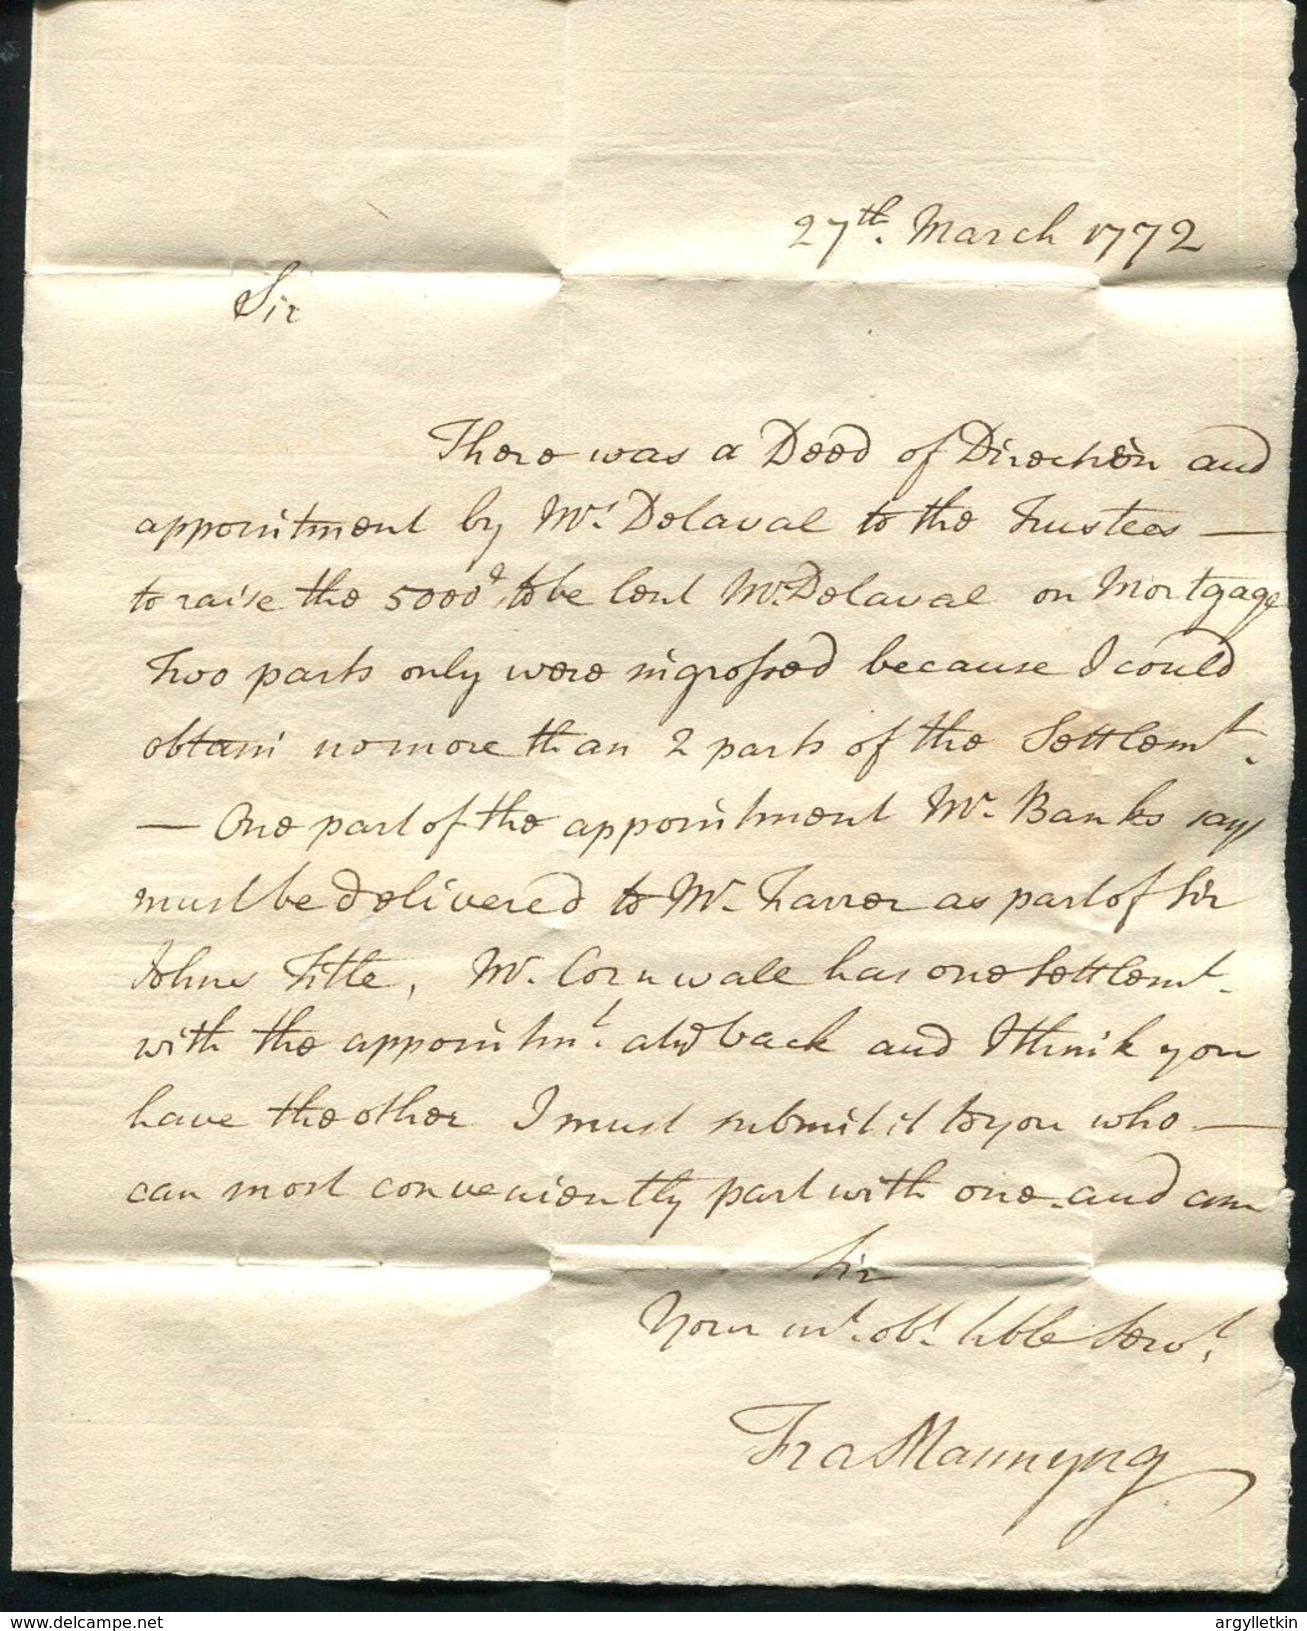 27th. March 1772
Sir
There was a Deed of Direction and
appointment by Mr. Delaval to the Trustees —
to raise the 5000£ to be lent Mr. Delaval on Mortgage
Two parts only were ingrossed because I could
obtain no more than 2 parts of the Settlemt.
— One part of the appointment Mr. Banks says
must be delivered to Mr. Farrer as part of Sir
Johns Title, Mr. Cornwall has one Settlemt.
with the appointmt. at ye back and I think you
have the other I must submit it to you who —
can most conveniently part with one. and am
Sir
Your mt. obt. hble Servt.
Fra Mannyng
www.delcampe.net
argylletkin